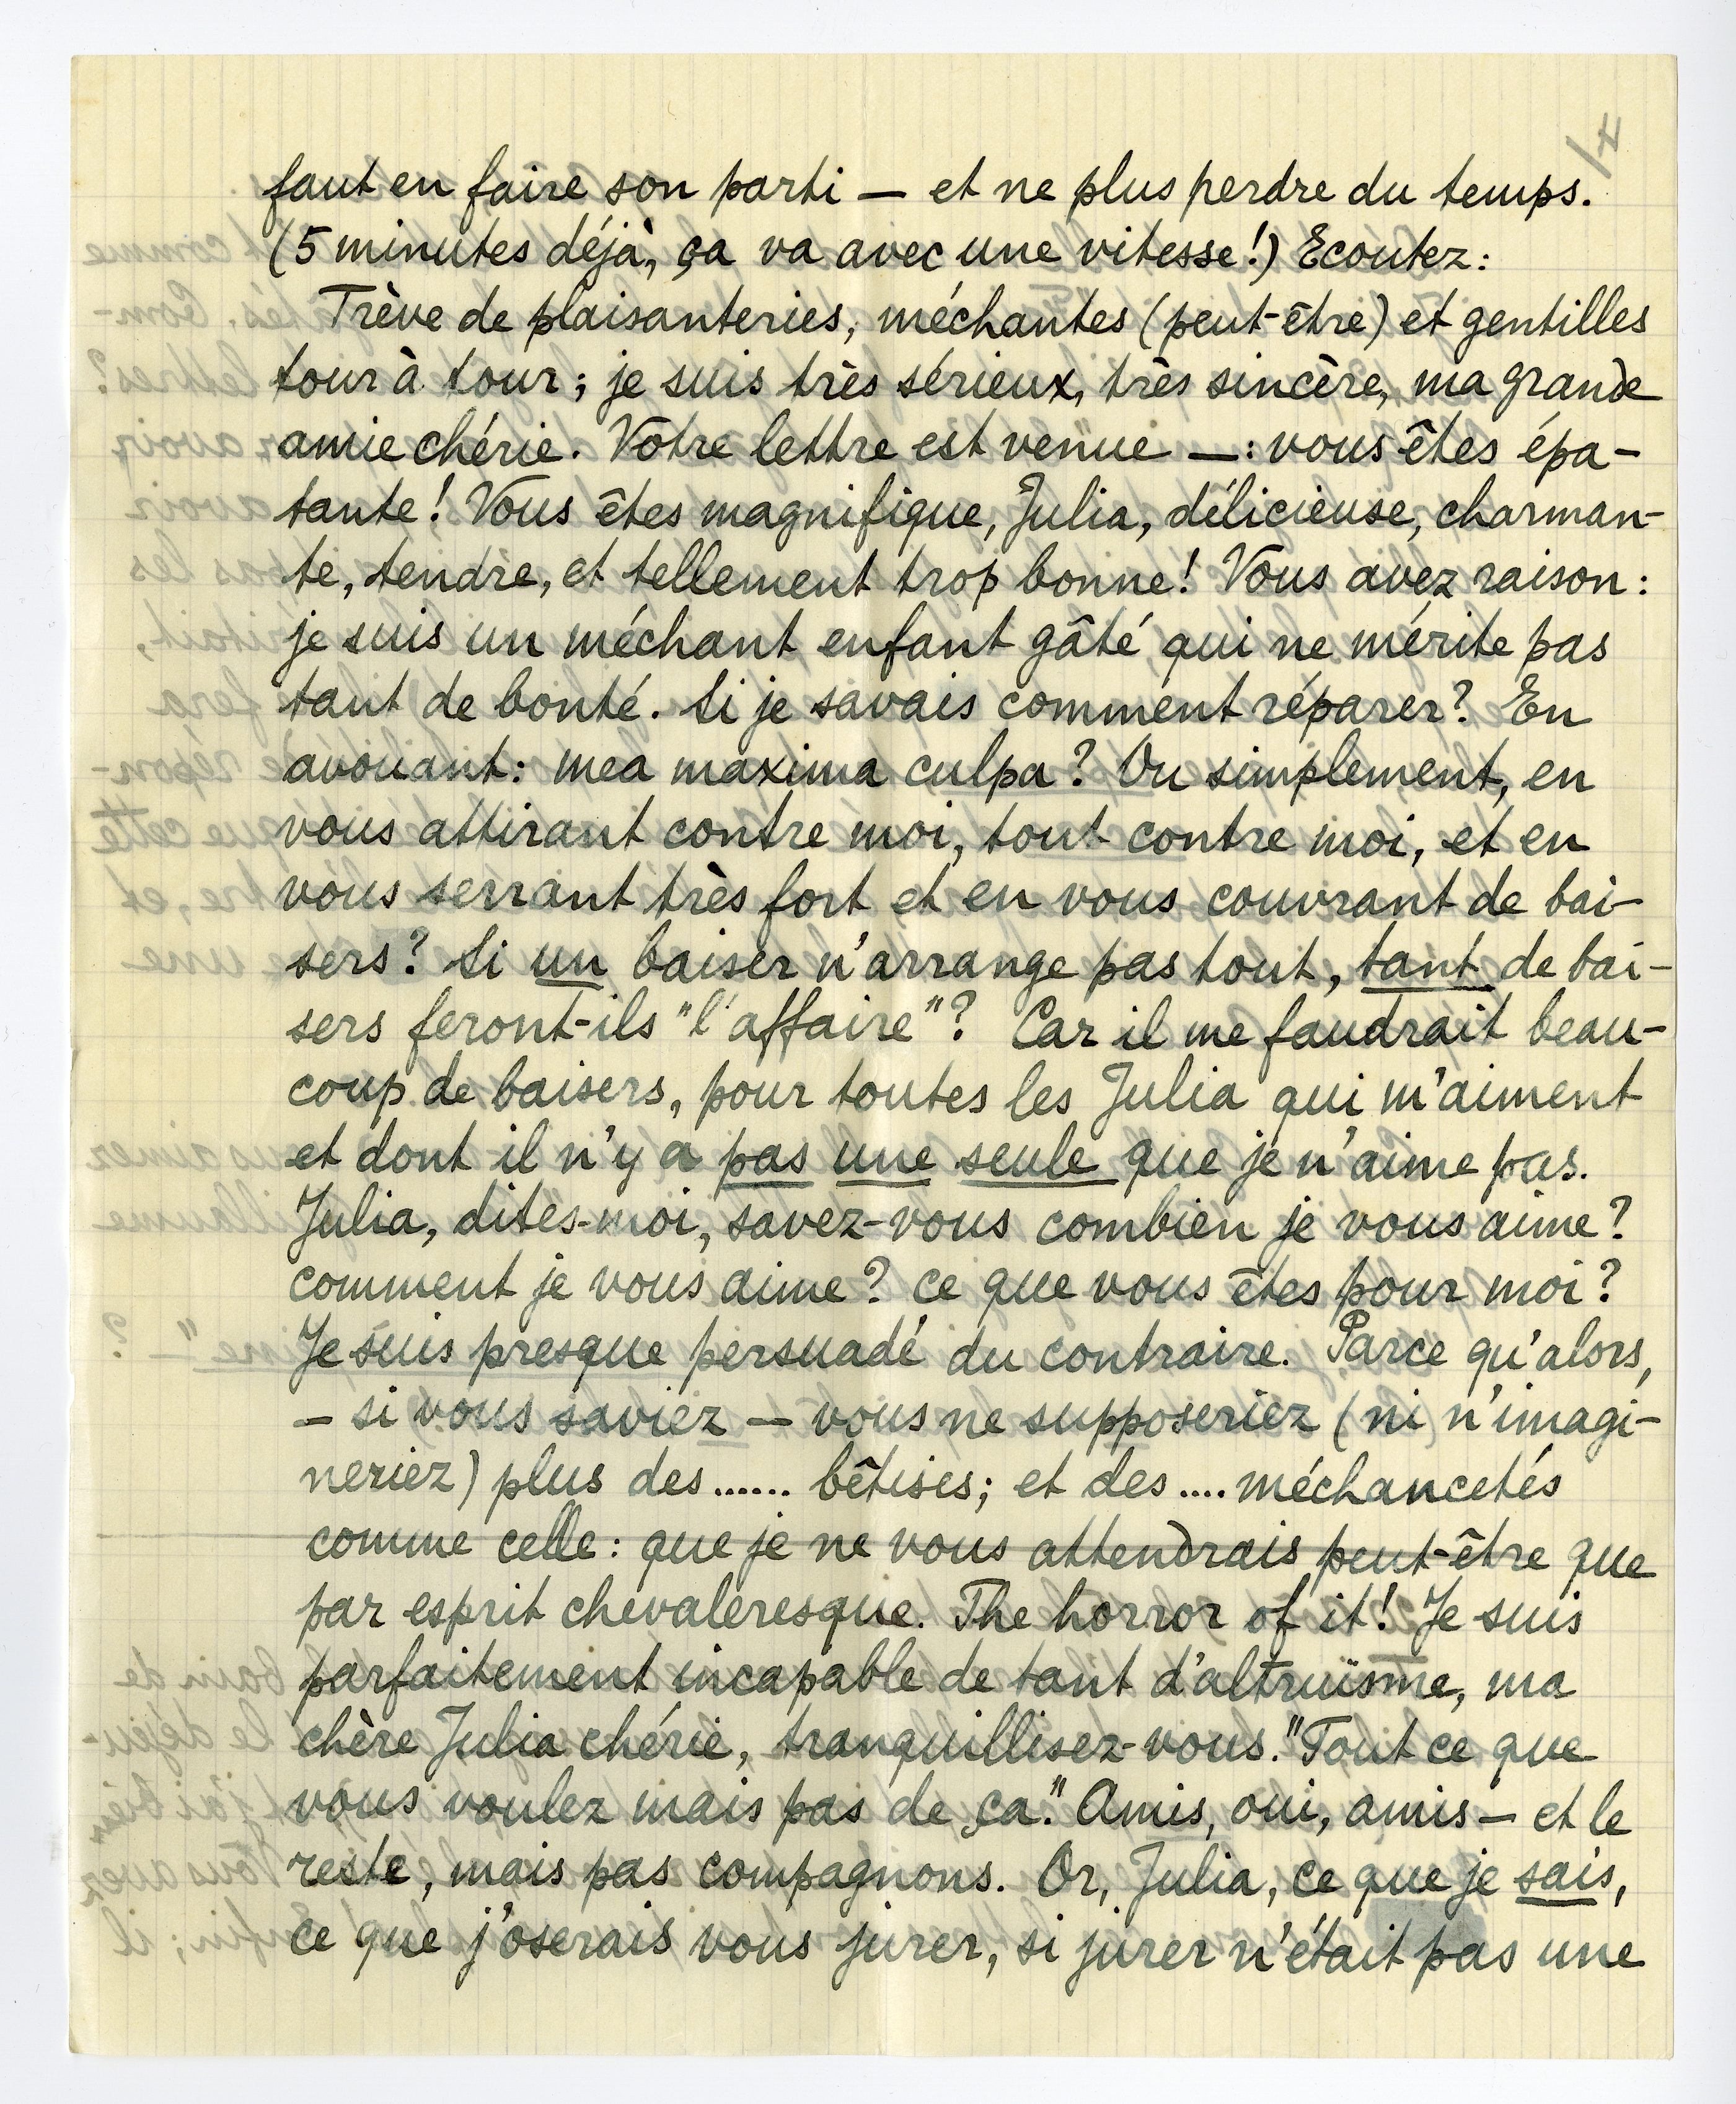 4/
faut en faire son parti — et ne plus perdre du temps.
(5 minutes déjà, ça va avec une vitesse!) Ecoutez:
Trève de plaisanteries, méchantes (peut-être) et gentilles
tour à tour; je suis très sérieux, très sincère, ma grande
amie chérie. Votre lettre est venue —: vous êtes épa-
tante! Vous êtes magnifique, Julia, délicieuse, charman-
te, tendre, et tellement trop bonne! Vous avez raison:
je suis un méchant enfant gâté qui ne mérite pas
tant de bonté. Si je savais comment réparer? En
avouant: mea maxima culpa? Ou simplement, en
vous attirant contre moi, tout contre moi, et en
vous serrant très fort et en vous couvrant de bai-
sers? Si un baiser n'arrange pas tout, tant de bai-
sers feront-ils "l'affaire"? Car il me faudrait beau-
coup de baisers, pour toutes les Julia qui m'aiment
et dont il n'y a pas une seule que je n'aime pas.
Julia, dites-moi, savez-vous combien je vous aime?
comment je vous aime? ce que vous êtes pour moi?
Je suis presque persuadé du contraire. Parce qu'alors,
— si vous saviez — vous ne supposeriez (ni n'imagi-
neriez) plus des ...... bêtises; et des .... méchancetés
comme celle: que je ne vous attendrais peut-être que
par esprit chevaleresque. The horror of it! Je suis
parfaitement incapable de tant d'altruïsme, ma
chère Julia chérie, tranquillisez-vous. "Tout ce que
vous voulez mais pas de ça." Amis, oui, amis — et le
reste, mais pas compagnons. Or, Julia, ce que je sais,
ce que j'oserais vous jurer, si jurer n'était pas une